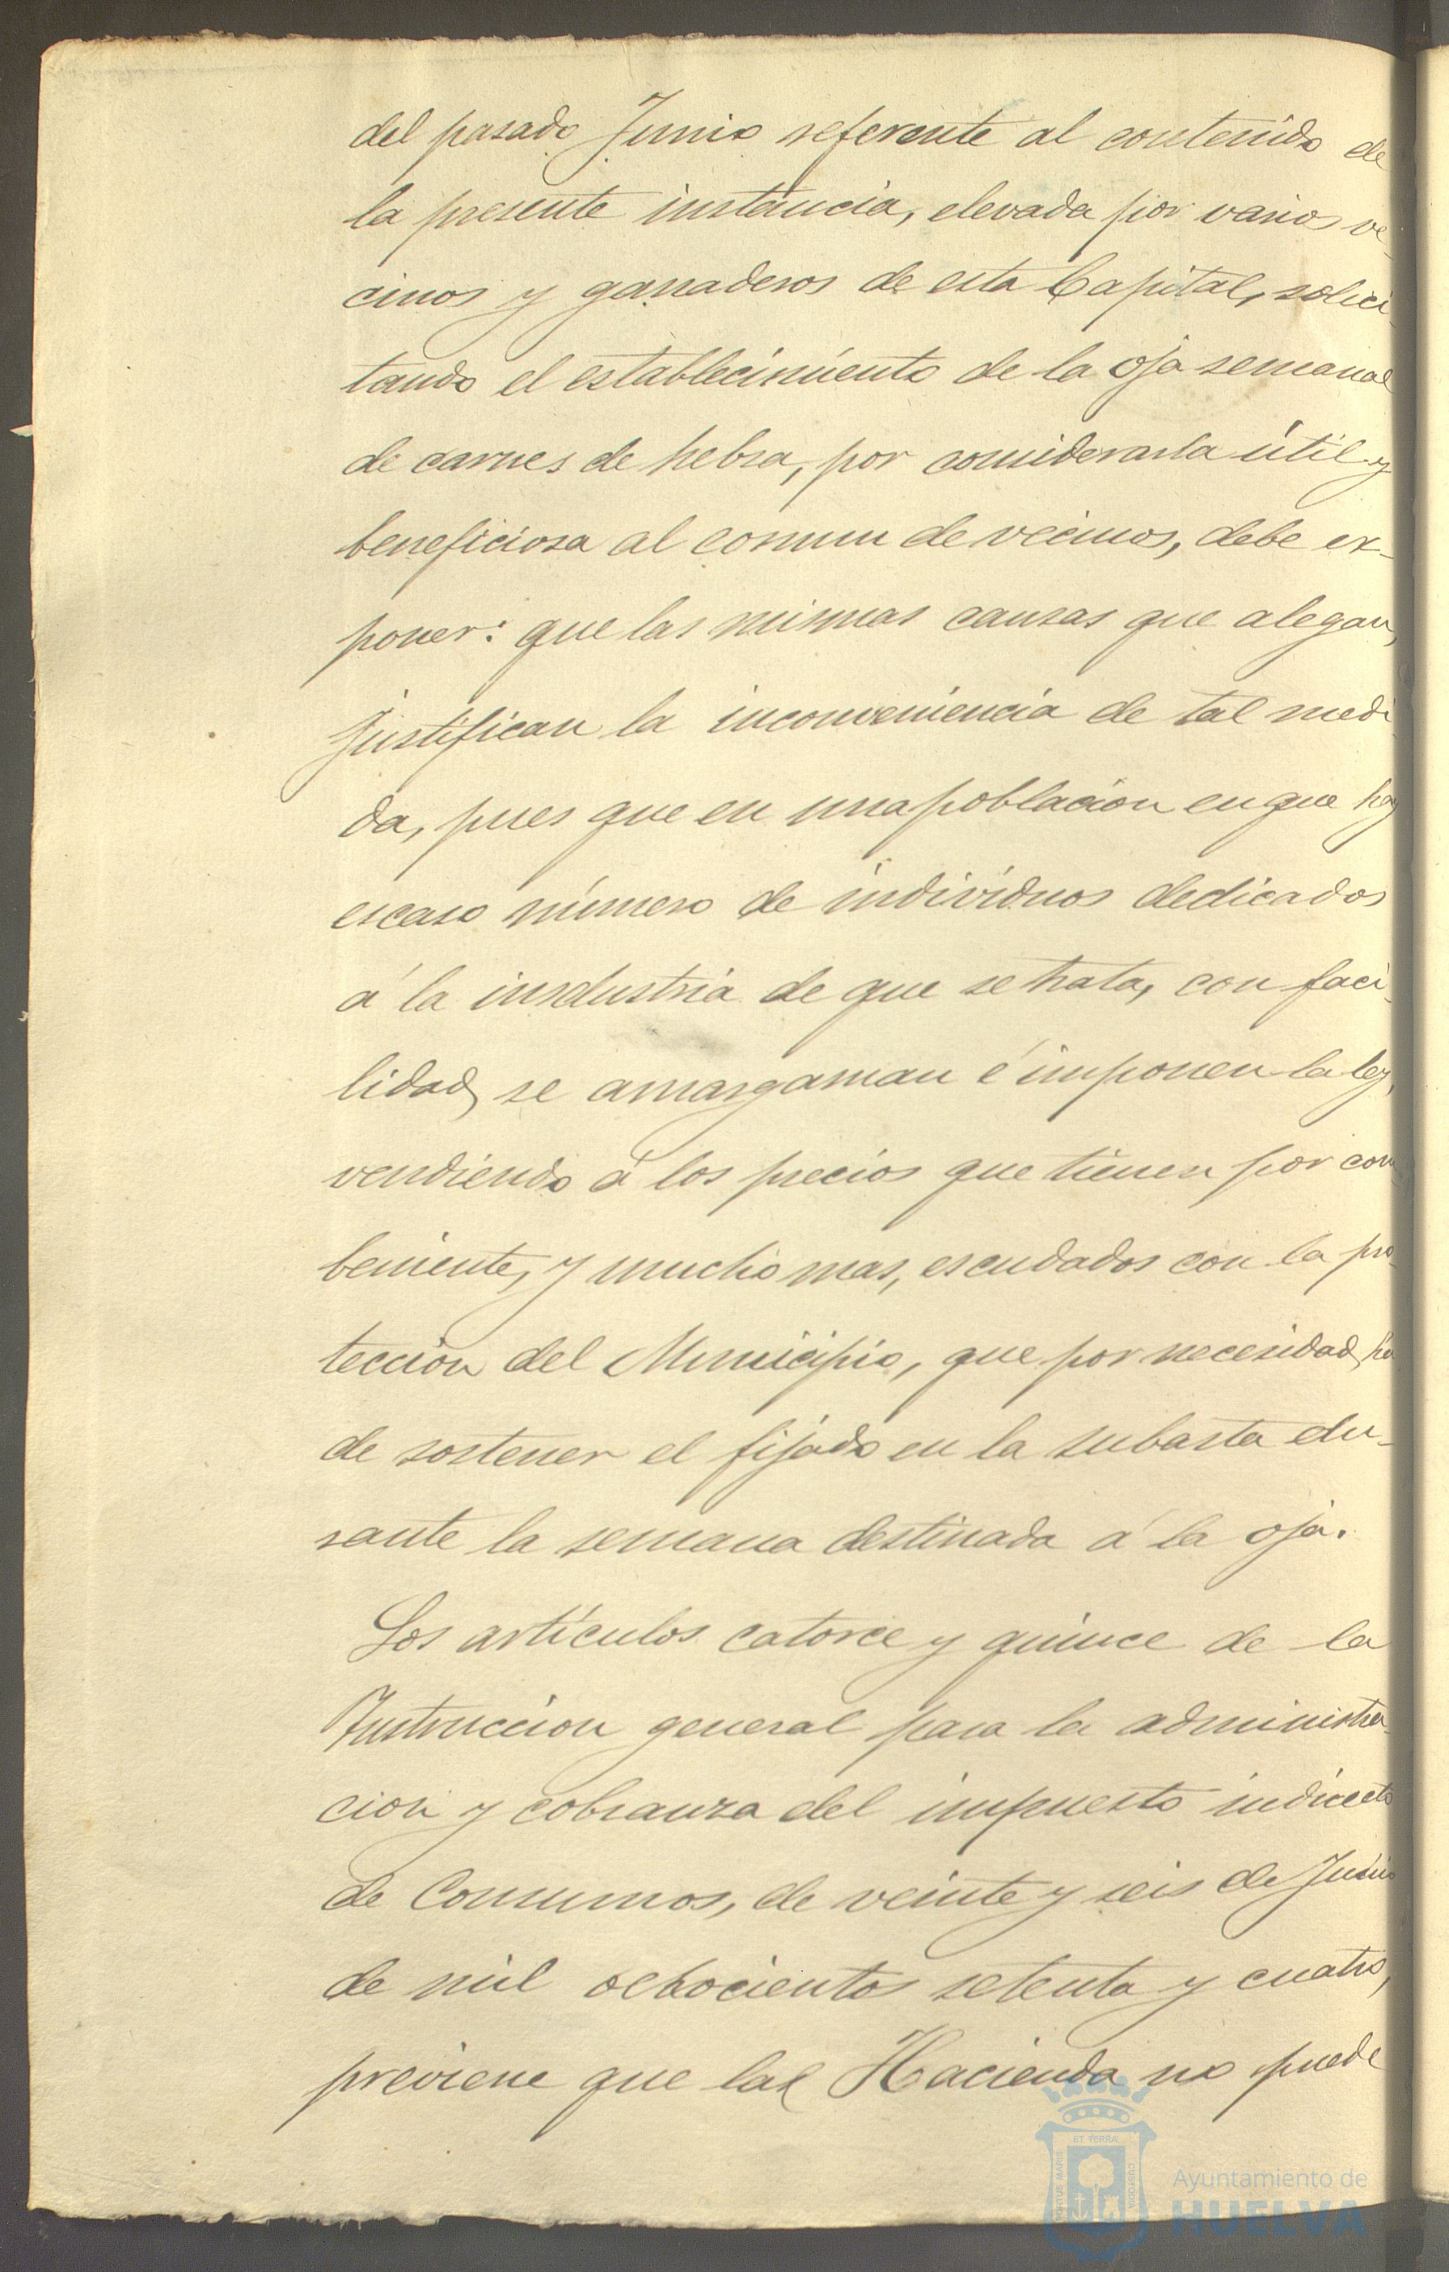 del pasado Junio referente al contenido de
la presente instancia, elevada por varios ve-
cinos y ganaderos de esta Capital, solici-
tando el establecimiento de la oja semanal
de carnes de hebra, por considerarla útil y
beneficiosa al comun de vecinos, debe ex-
poner: que las mismas causas que alegan,
justifican la inconveniencia de tal medi
da, pues que en una poblacion en que hay
escaso número de individuos dedicados
á la insdustria de que se trata, con faci-
lidad se amargaman é imponen la ley,
vendiendo á los precios que tienen por con-
beniente, y mucho mas, escudados con la pro-
teccion del Municipio, que por necesidad ha
de sostener el fijado en la subasta du-
rante la semana destinada á la oja.
Los artículos catorce y quince de la
Instruccion general para la administra-
cion y cobranza del impuesto indirecto
de Consumos, de veinte y seis de Junio
de mil ochocientos setenta y cuatro,
previene que lal Hacienda no puede
ET TERRÆ
PORTUS MARIS
CUSTODIA
Ayuntamiento de
HUELVA